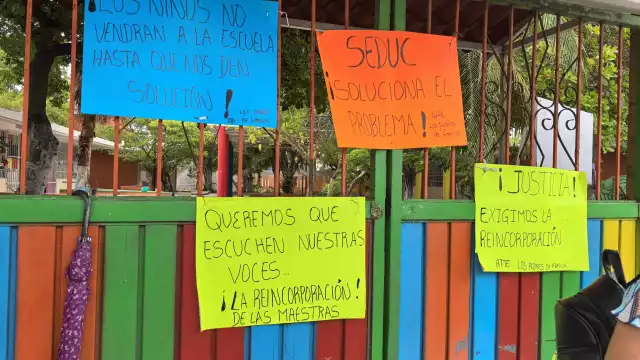 ¡LOS NIÑOS NO
VENDRAN A LA ESCUELA
HASTA QUE NOS DEN
SOLUCIÓN!
SEDUC
¡SOLUCIONA EL
PROBLEMA!
QUEREMOS QUE
ESCUCHEN NUESTRAS
VOCES...
¡LA REINCORPORACIÓN!
DE LAS MAESTRAS
¡JUSTICIA!
EXIGIMOS LA
REINCORPORACIÓN
ATTE: LOS PADRES DE FAMILIA